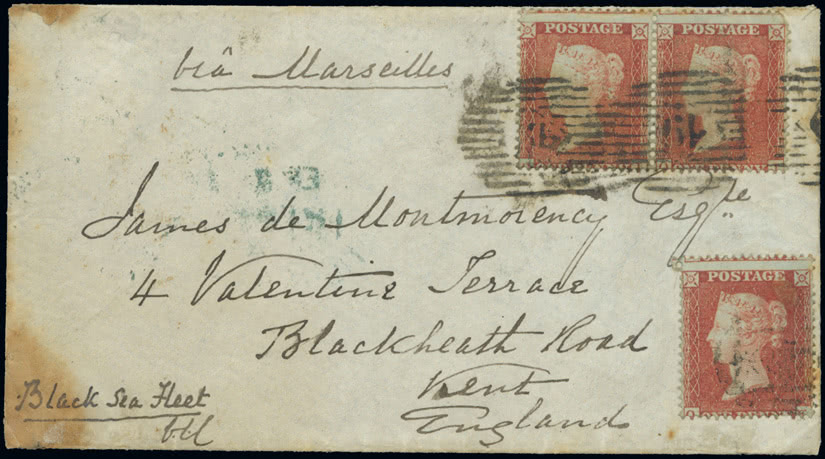 viâ Marseilles
POSTAGE POSTAGE
James de Montmorency Esqre
4 Valentine Terrace
POSTAGE
Blackheath Road
Kent
England
Black Sea Fleet